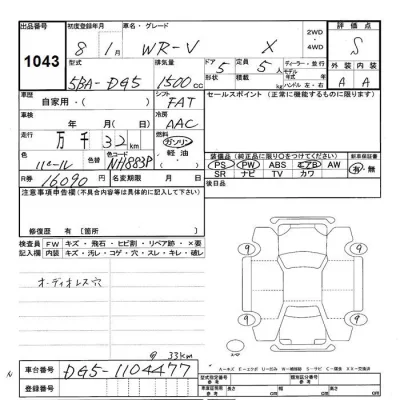 出品番号 初度登録年月 車名・グレード 2WD ・ 4WD 評価点
1043 8年 1月 WR-V X S
型式 排気量 ドア 定員 ディーラー・並行 外装 内装
5BA-DG5 1500cc 5 形状 5人 積載 kg モデル 年 ハンドル 左・右 A A
車歴 自家用・( ) シフト FAT セールスポイント (正常に機能するものに限ります)
車検 年 月( ) 冷房 AAC
走行 万 千 32 km 燃料 ガソリン 軽油 ( )
色 パール 色替 色コード NH883P 装備品(純正品に限り○をつけてください) 新車保証書
R券 16090 円 名変期限 月 日 PS PW ABS エアB AW 有・無
SR ナビ TV カワ
注意事項申告欄(不具合内容等は具体的に記入して下さい) 後日品
修復歴 有 [箇所
検査員 FW キズ・飛石・ヒビ割・リペア跡・×要
記入欄 内装 キズ・汚レ・コゲ・穴・スレ・キレ・破レ
オーディオレス穴
9 9
9 9
スペア
9 33km
A-キズ E-エクボ U-凹み W-補修跡 S-サビ C-腐食 X-要交換 XX-交換済
車台番号 DG5-1104477 型式指定番号 類別区分番号
登録番号 参考 長さ cm 幅 cm 高さ cm